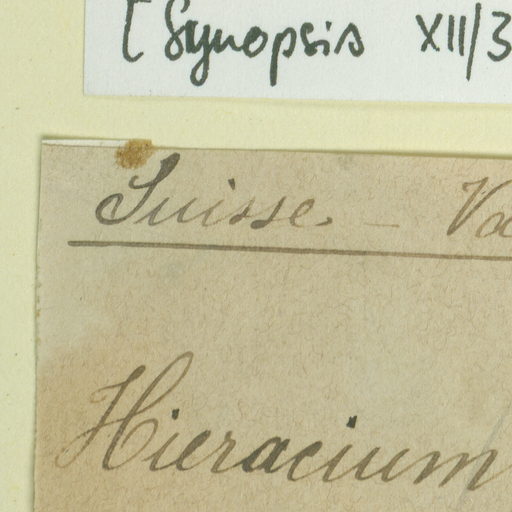 [ Synopsis XII/3
Suisse. –
Hieracium